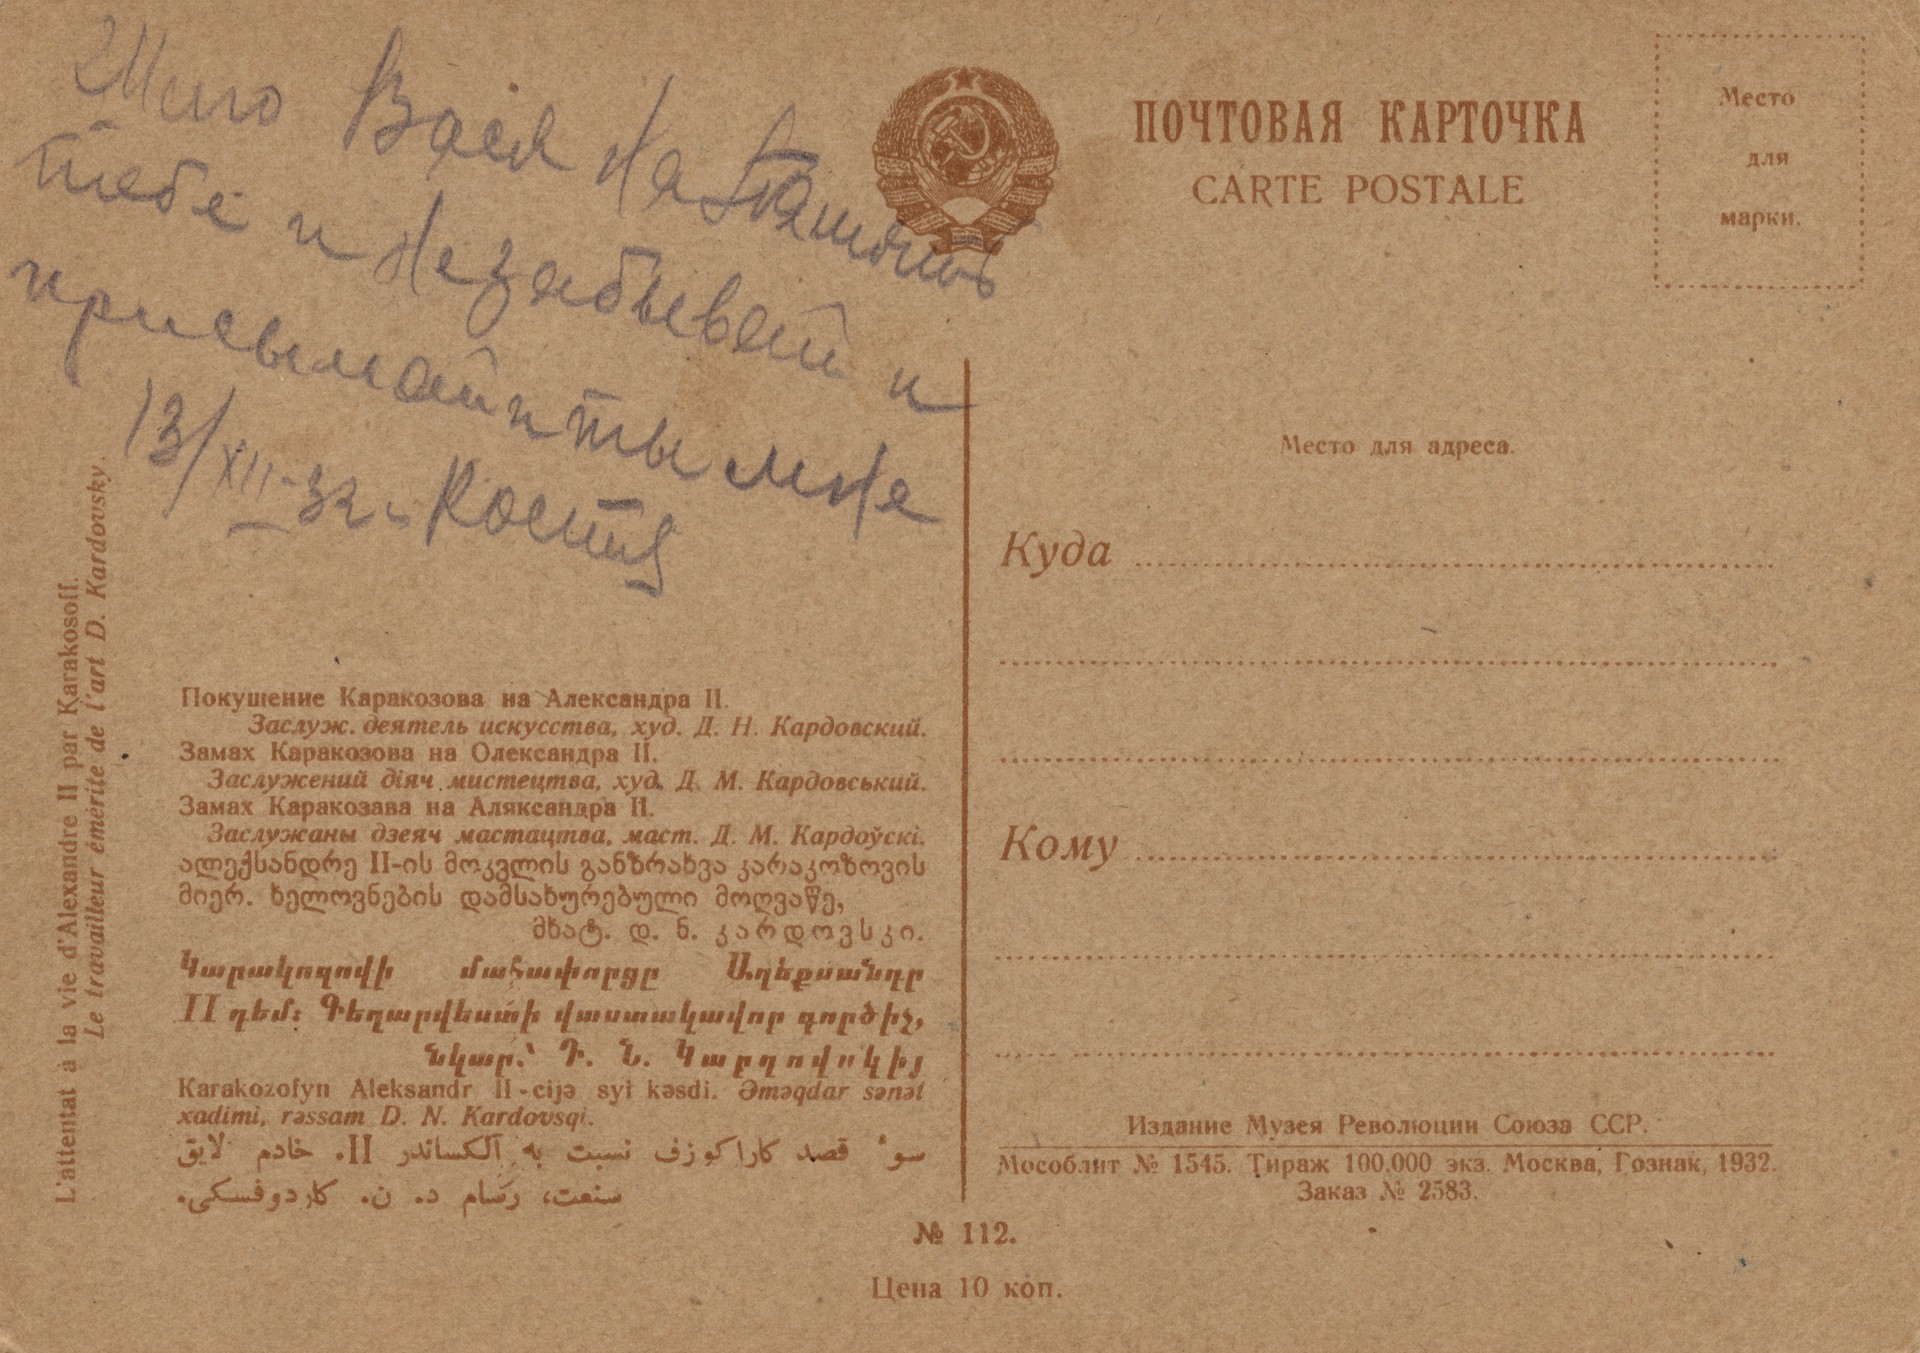 Шло Вася На Память
тебе и Незабывай и
присылай и ты мне
13/XII-32 г. Костя
ПОЧТОВАЯ КАРТОЧКА
CARTE POSTALE
Место
для
марки.
Место для адреса.
Куда
Кому
L'attentat à la vie d'Alexandre II par Karakosoff.
Le travailleur émérite de l'art D. Kardovsky.
Покушение Каракозова на Александра II.
Заслуж. деятель искусства, худ. Д. Н. Кардовский.
Замах Каракозова на Олександра II.
Заслужений діяч мистецтва, худ. Д. М. Кардовський.
Замах Каракозава на Аляксандра II.
Заслужаны дзеяч мастацтва, маст. Д. М. Кардоўскі.
ალექსანდრე II-ის მოკვლის განზრახვა კარაკოზოვის
მიერ. ხელოვნების დამსახურებული მოღვაწე,
მხატ. დ. ნ. კარდოვსკი.
Կարակոզովի մահափորցը Աղեքսանդր
II դեմ: Գեղարվեստի վաստակավոր գործիչ,
նկար.՝ Դ. Ն. Կարդովսկիյ
Karakozofyn Aleksandr II-cijə syi kəsdi. Əməqdar sənət
xadimi, rəssam D. N. Kardovsqi.
سوٴ قصد كاراكوزف نسبت به آلكساندر II. خادم لايق
سنعت، رسام د. ن. كاردوفسكى.
Издание Музея Революции Союза ССР.
Мособлит № 1545. Тираж 100.000 экз. Москва, Гознак, 1932.
Заказ № 2583.
№ 112.
Цена 10 коп.